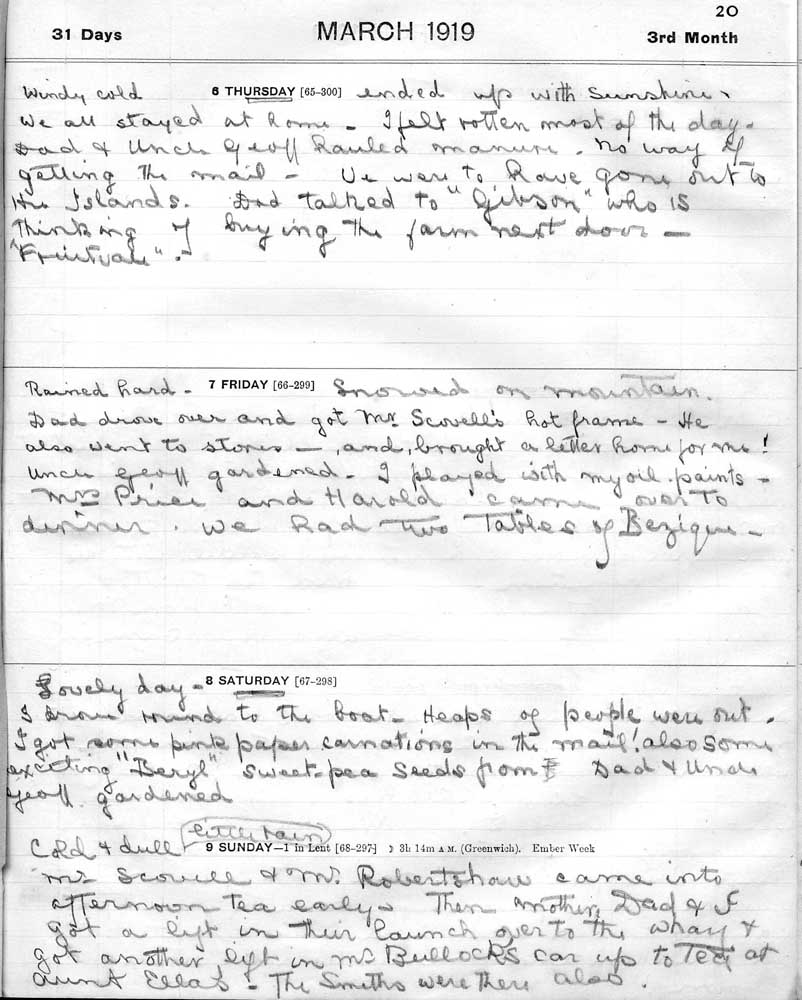 20
31 Days MARCH 1919 3rd Month
Windy cold 6 THURSDAY [65-300] ended up with sunshine.
We all stayed at home - I felt rotten most of the day.
Dad & Uncle Geoff hauled manure. No way of
getting the mail - We were to have gone out to
the Islands. Dad talked to "Gibson" who is
thinking of buying the farm next door -
"Fruitvale".-
Rained hard - 7 FRIDAY [66-299] Snowed on mountain.
Dad drove over and got Mr. Scovell's hot frame - He
also went to stores - and, brought a letter home for me!
Uncle Geoff gardened. I played with my oil.paints -
Mrs Price and Harold came over to
dinner. We had two Tables of Bezique -
Lovely day - 8 SATURDAY [67-298]
I drove round to the boat - Heaps of people were out.
I got some pink paper carnations in the mail! also some
exciting "Beryl" sweet-pea seeds from Dad & Uncle
Geoff gardened
little rain
Cold & dull 9 SUNDAY—1 in Lent [68-297] ☽ 3h 14m A.M. (Greenwich). Ember Week
Mr Scovell & Mr. Robertshaw came into
afternoon tea early - Then mother, Dad & I
got a lift in their launch over to the wharf &
got another lift in Mr Bullocks car up to Tea at
Aunt Ella's! The Smiths were there also.